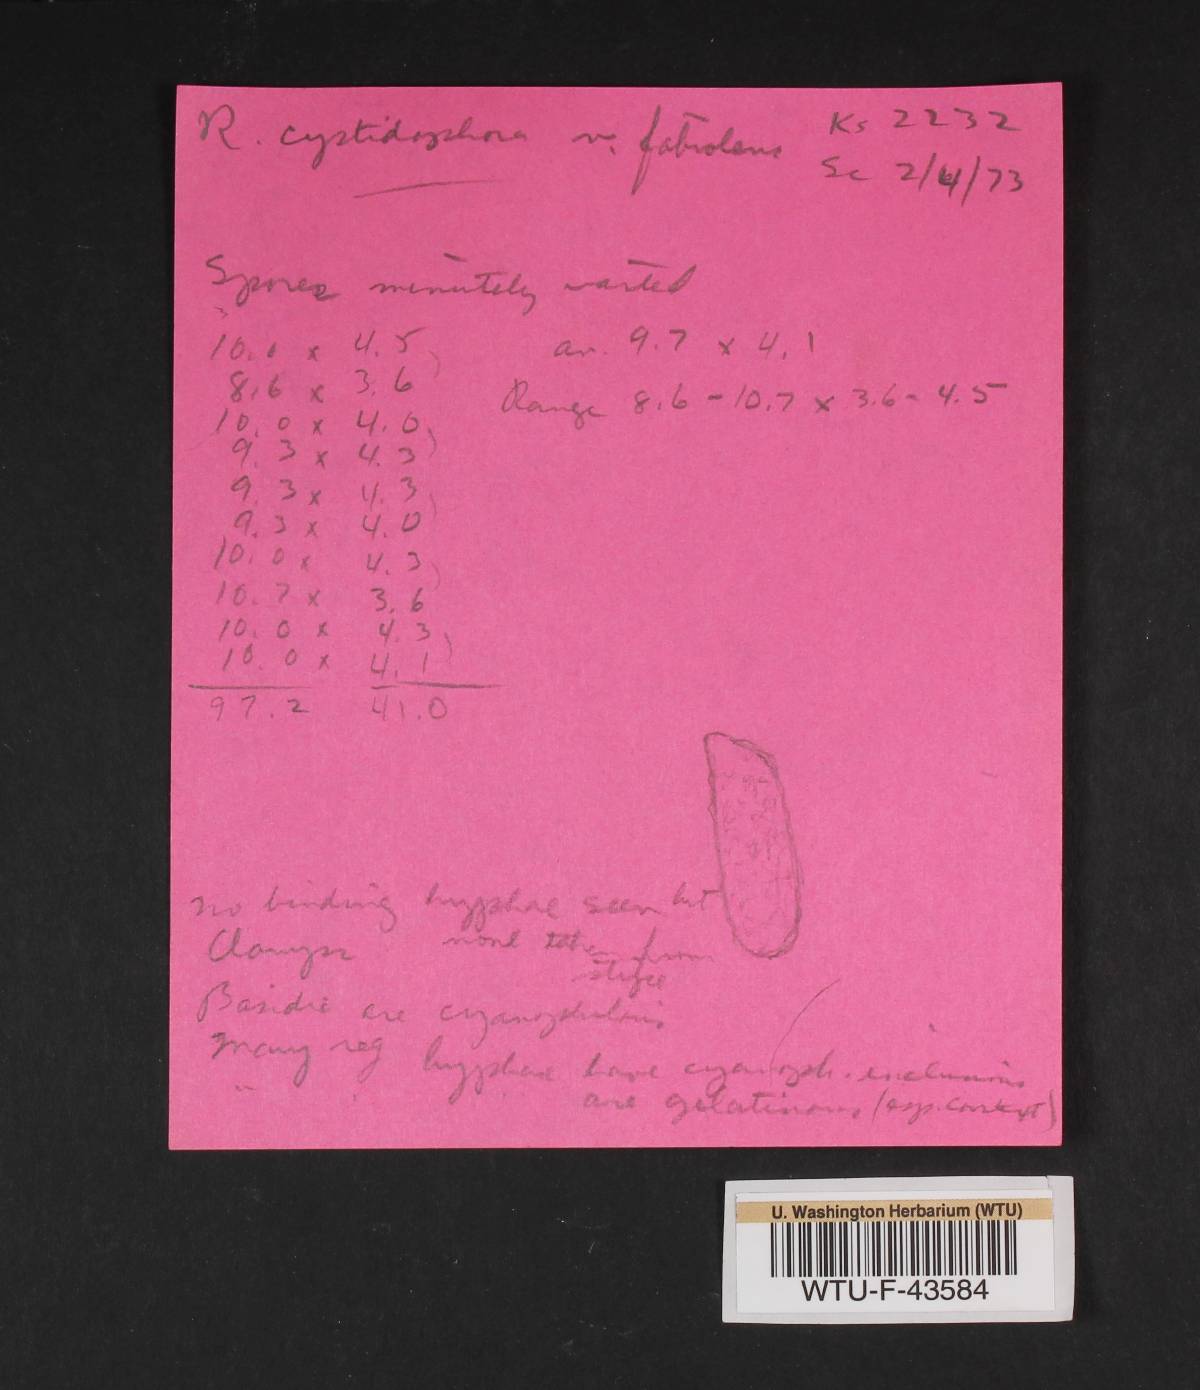 R. cystidiophora v. fabiolens Ks 2232
Sc 2/4/73
Spores minutely warted
10.0 x 4.5 av. 9.7 x 4.1
8.6 x 3.6 Range 8.6 - 10.7 x 3.6 - 4.5
10.0 x 4.0
9.3 x 4.3
9.3 x 4.3
9.3 x 4.0
10.0 x 4.3
10.7 x 3.6
10.0 x 4.3
10.0 x 4.1
97.2 41.0
no binding hyphae seen but
Clamps none taken from
stipe
Basidia are cyanophilous
Many reg hyphae have cyanoph. inclusions
" " are gelatinous (esp. context)
U. Washington Herbarium (WTU)
WTU-F-43584